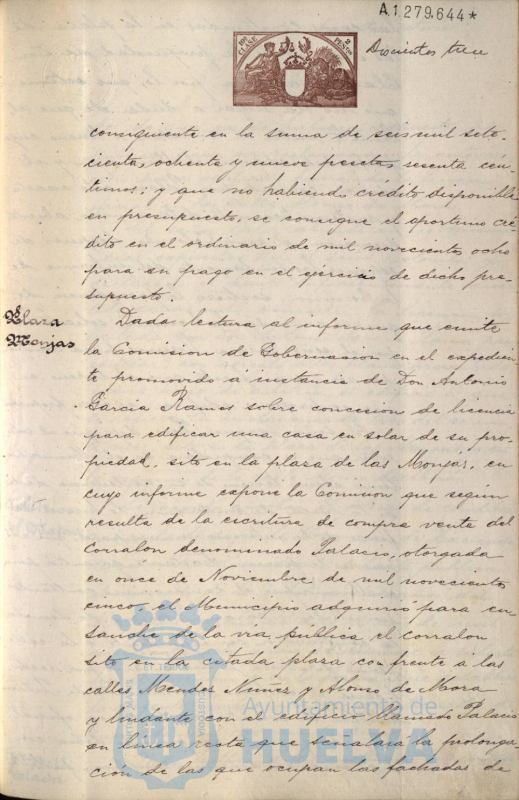 A.1.279.644*
10ª CLASE
2 PESETAS
Doscientos trece
consiguiente en la suma de seis mil sete-
cientas ochenta y nueve pesetas sesenta cén-
timos; y que no habiendo credito disponible
en presupuesto, se consigne el oportuno cré
dito en el ordinario de mil novecientos ocho
para su pago en el ejercicio de dicho pre-
supuesto.
Plaza
Monjas
Dada lectura al informe que emite
la Comision de Gobernacion en el expedien
te promovido á instancia de Don Antonio
Garcia Ramos sobre concesion de licencia
para edificar una casa en solar de su pro-
piedad, sito en la plaza de las Monjas, en
cuyo informe expone la Comision que segun
resulta de la escritura de compra venta del
corralon denominado Palacio, otorgada
en once de Noviembre de mil novecientos
cinco, el Municipio adquirió para en-
sanche de la via pública el corralon
sito en la citada plaza con frente á las
calles Mendez Nuñez y Alonso de Mora
y lindante con el edificio llamado Palacio
en linea recta que señalara la prolonga
ción de las que ocupan las fachadas de
Ayuntamiento de
HUELVA